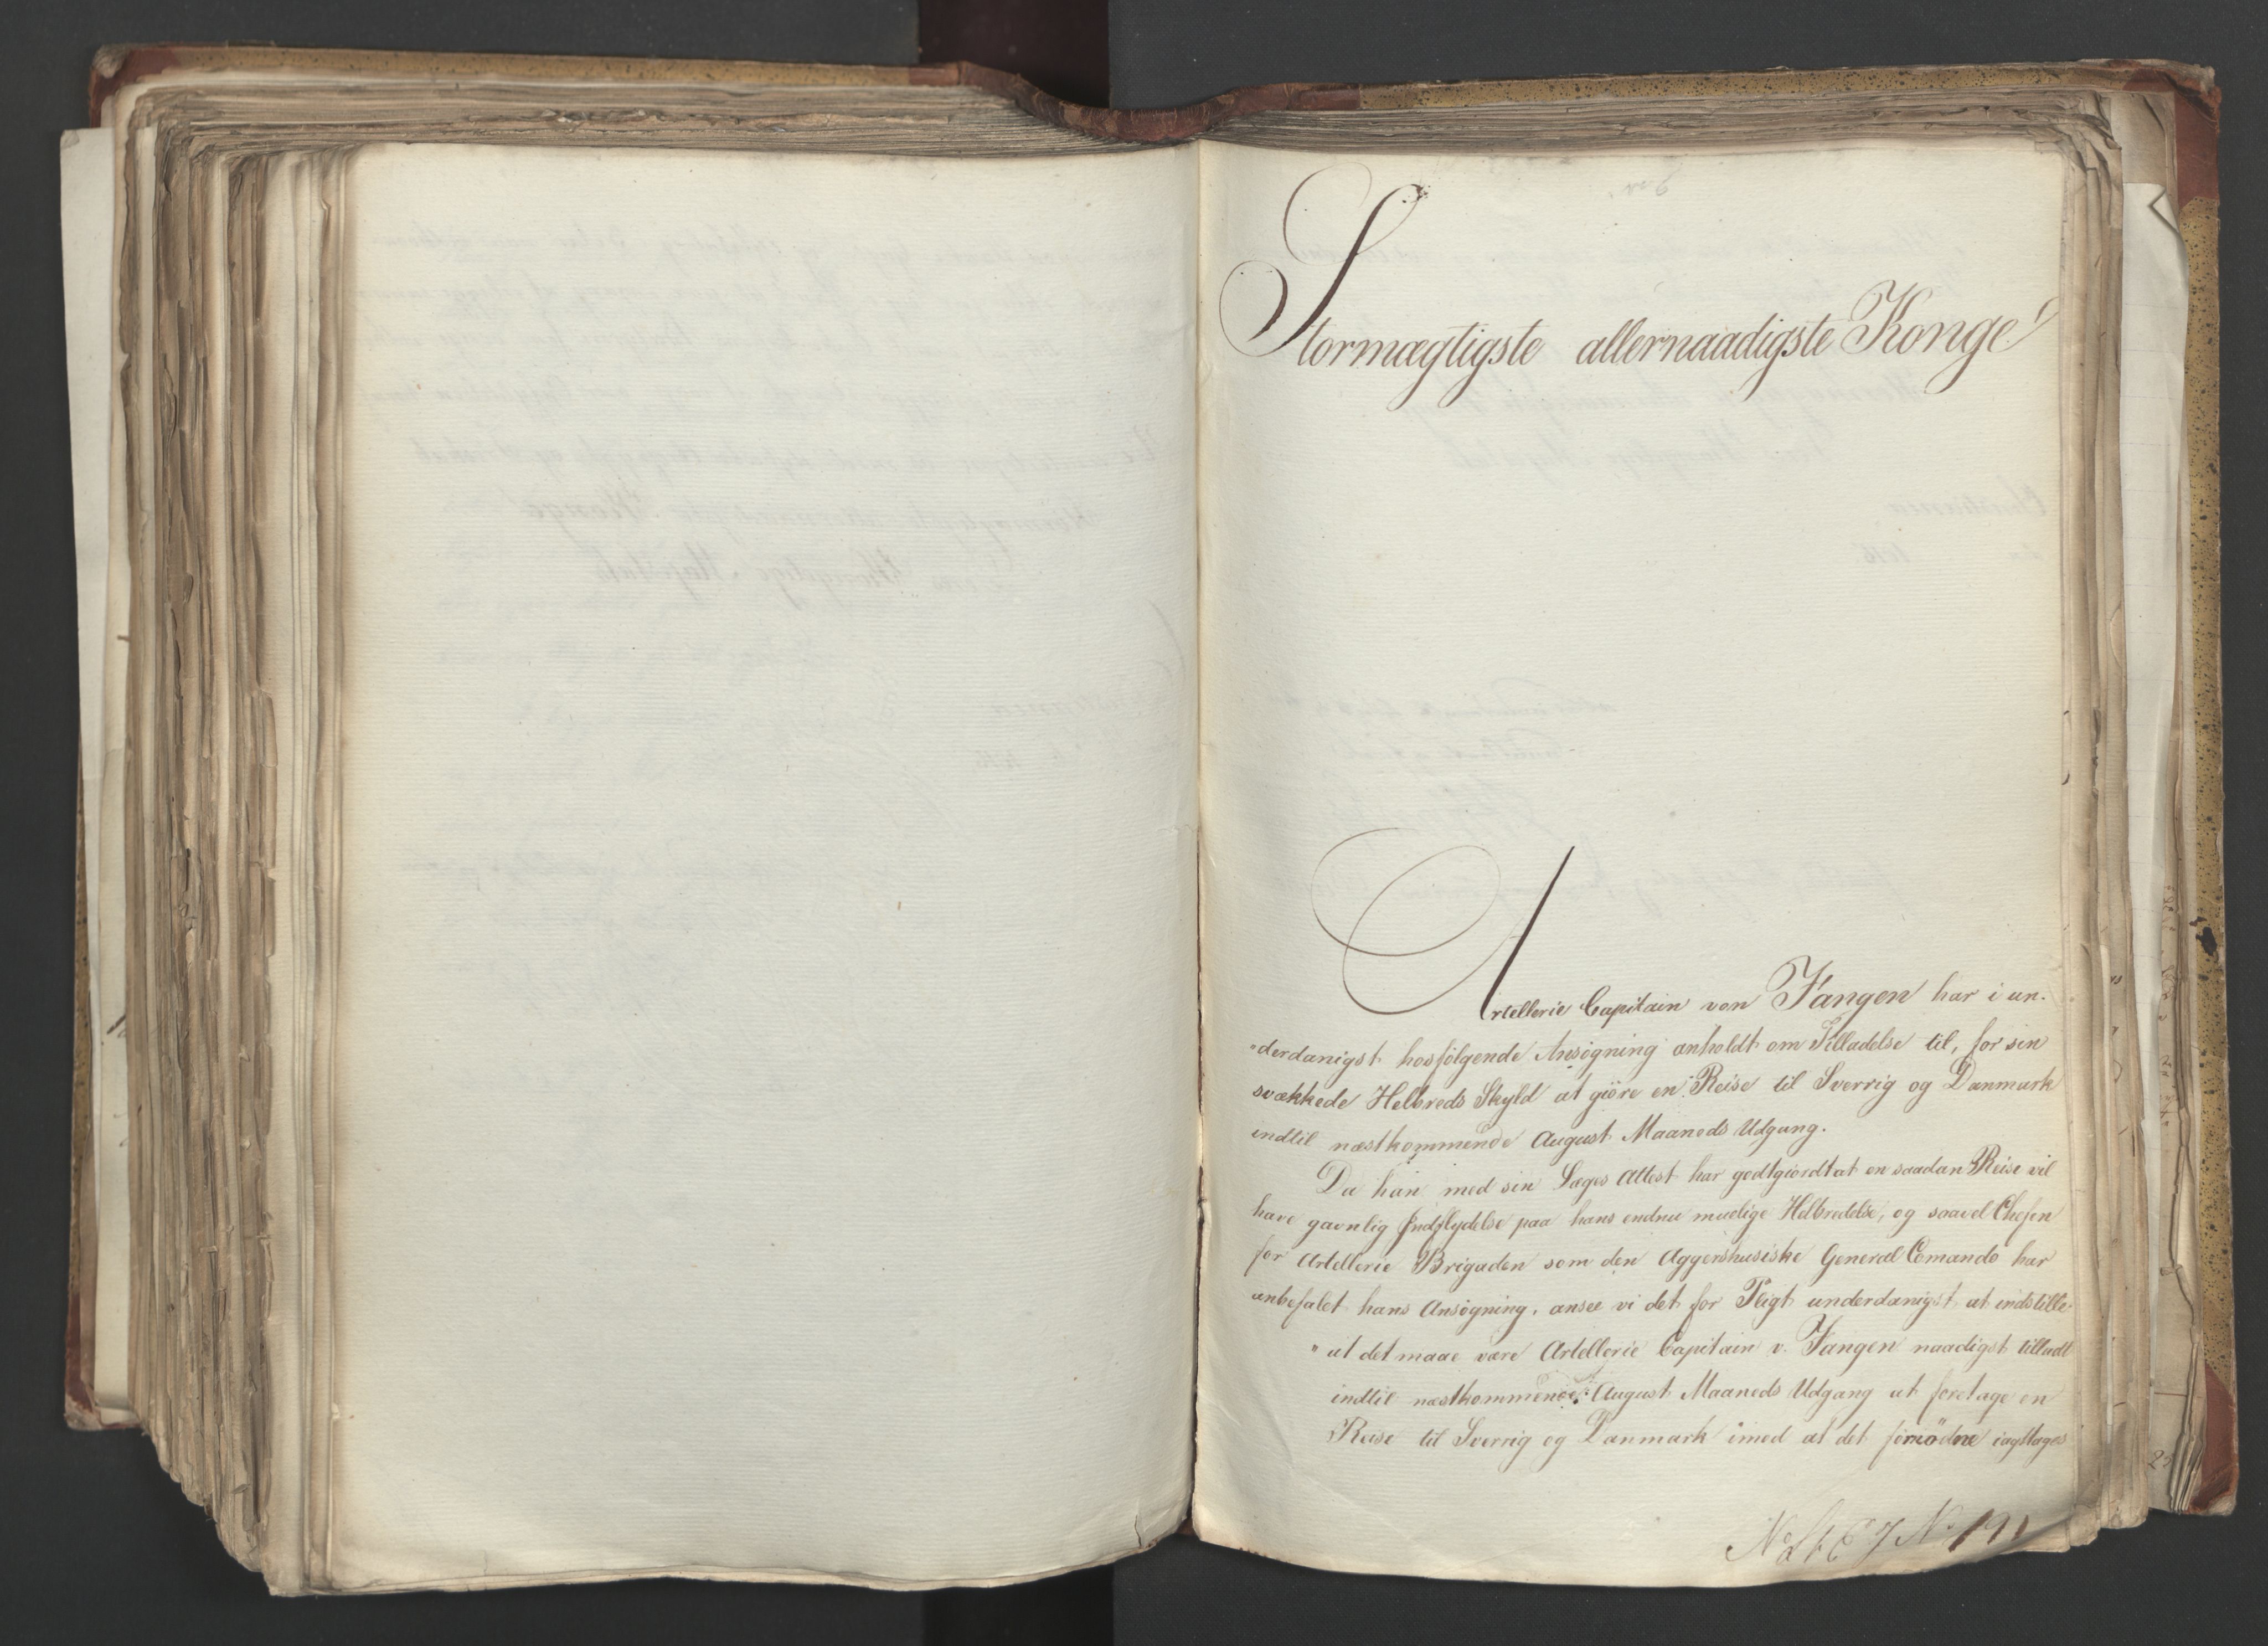 Stormægtigste allernaadigste Konge!
Artellerie Capitain von Fangen har i un-
"derdanigst hosfölgende Ansögning anholdt om Tilladelse til, for sin
svækkede Helbreds Skyld at giöre en Reise til Sverrig og Danmark
indtil næstkommende August Maaneds Udgang.
Da han med sin Læges Attest har godtgiordt at en saadan Reise vil
have gavnlig Indflydelse paa hans endnu muelige Helbredelse, og saavel Chefen
for Artellerie Brigaden som den Aggershusiske General Comando har
anbefalet hans Ansögning, ansee vi det for Pligt underdanigst at indstille:
"at det maae være Artellerie Capitain v. Fangen naadigst tilladt
indtil næstkommende August Maaneds Udgang at foretage en
Reise til Sverrig og Danmark imod at det fornödne iagttages